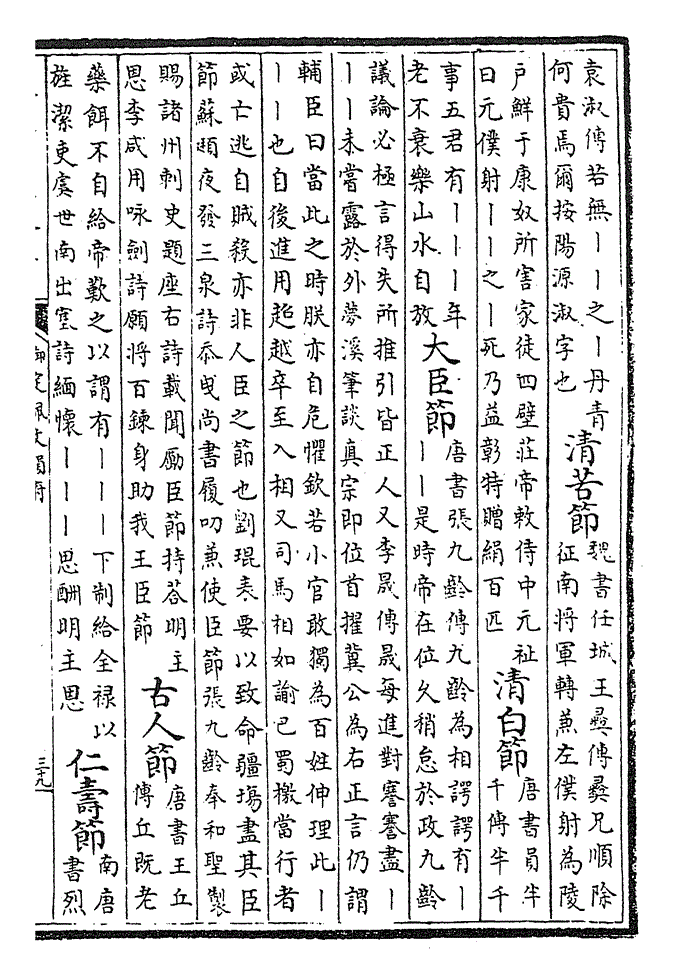 袁淑傳若無丨丨之丨丹青
何貴焉爾按陽源淑字也
清苦節
魏書任城王彞傳彞兄順除
征南將軍轉兼左僕射為陵
戶鮮于康奴所害家徒四壁莊帝敕侍中元祉
曰元僕射丨丨之丨死乃益彰特贈絹百匹
清白節
唐書員半
千傳半千
事五君有丨丨丨年
老不衰樂山水自放
大臣節
唐書張九齡傳九齡為相諤諤有丨
丨丨是時帝在位久稍怠於政九齡
議論必極言得失所推引皆正人又李晟傳晟每進對謇謇盡丨
丨丨未嘗露於外夢溪筆談真宗即位首擢冀公為右正言仍謂
輔臣曰當此之時朕亦自危懼欽若小官敢獨為百姓伸理此丨
丨丨也自後進用超越卒至入相又司馬相如諭巴蜀檄當行者
或亡逃自賊殺亦非人臣之節也劉琨表要以致命疆埸盡其臣
節蘇頲夜發三泉詩忝曳尚書履叨兼使臣節張九齡奉和聖製
賜諸州刺史題座右詩載聞勵臣節持荅明主
恩李咸用咏劍詩願將百鍊身助我王臣節
古人節
唐書王丘
傳丘既老
藥餌不自給帝歎之以謂有丨丨丨下制給全禄以
旌潔吏虞世南出塞詩緬懷丨丨丨思酬明主恩
仁壽節
南唐
書烈
御定佩文韻府
三九